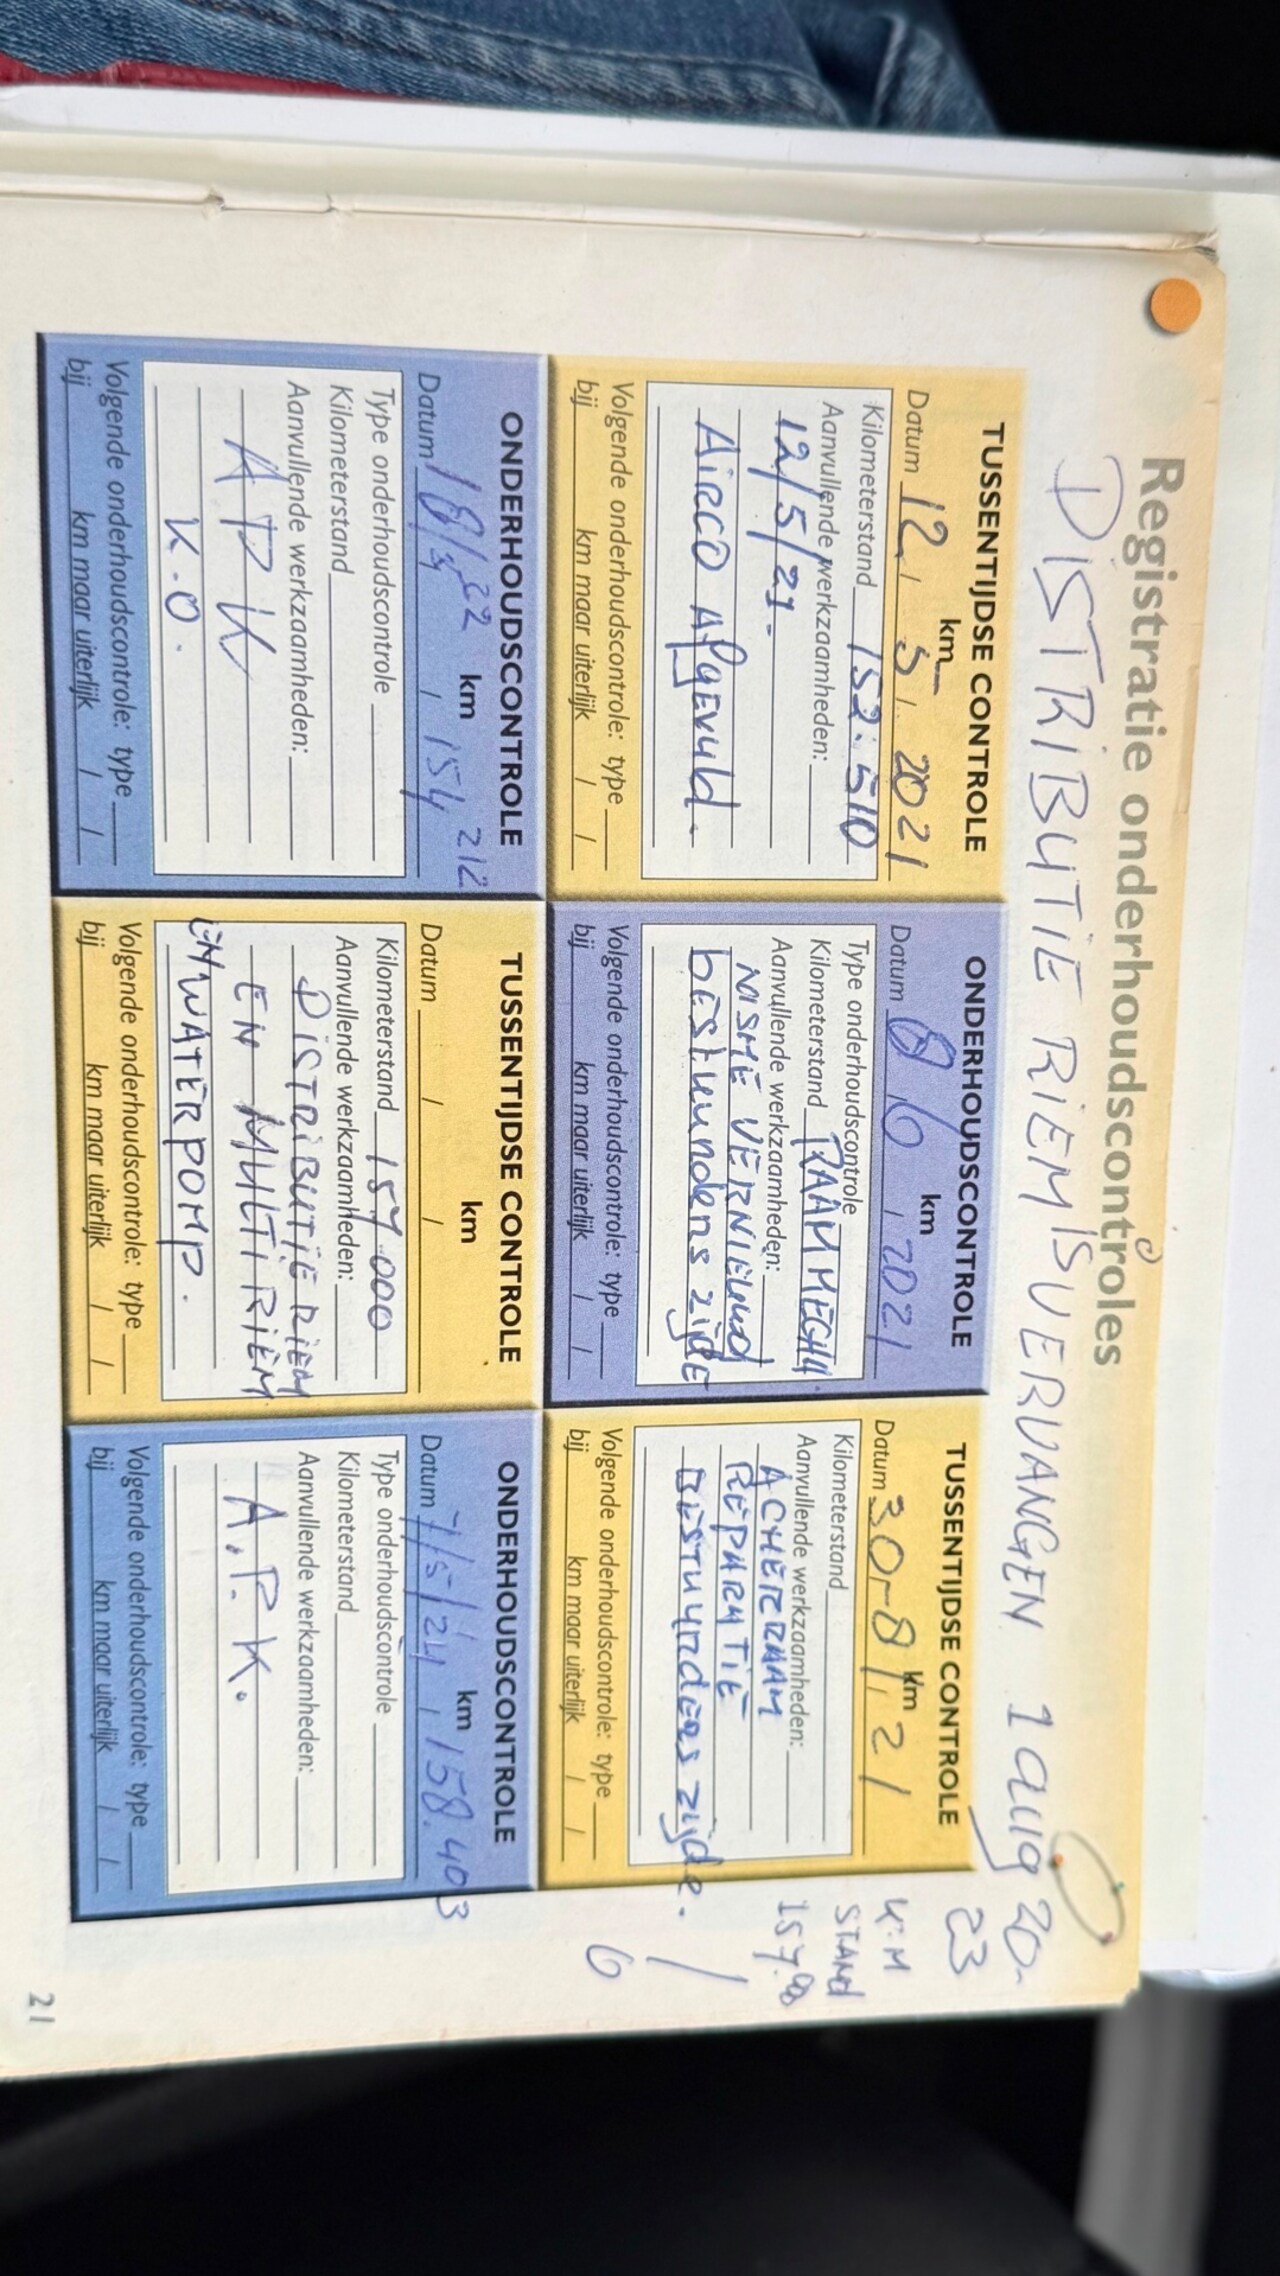 Registratie onderhoudscontroles
DISTRIBUTIE RIEM VERVANGEN 1 aug 20-
23
K:M
STAND
157.00
0
TUSSENTIJDSE CONTROLE
km
Datum 12 / 5 / 2021
Kilometerstand 152.510
Aanvullende werkzaamheden:
12/5/21.
Airco Afgevuld.
Volgende onderhoudscontrole: type
bij km maar uiterlijk / /
ONDERHOUDSCONTROLE
km
Datum 8 / 6 / 2021
Type onderhoudscontrole
Kilometerstand RAAM MECHA.
Aanvullende werkzaamheden:
NISME VERNIEUWD
bestuurders zijde
Volgende onderhoudscontrole: type
bij km maar uiterlijk / /
TUSSENTIJDSE CONTROLE
km
Datum 30-8 / 21
Kilometerstand
Aanvullende werkzaamheden:
ACHERRAAM
REPARATIE
BESTUURDERS zijde.
Volgende onderhoudscontrole: type
bij km maar uiterlijk / /
ONDERHOUDSCONTROLE
km
Datum / 154 212
Type onderhoudscontrole
Kilometerstand
Aanvullende werkzaamheden:
APK
K.O.
Volgende onderhoudscontrole: type
bij km maar uiterlijk / /
TUSSENTIJDSE CONTROLE
km
Datum / /
Kilometerstand 157.000
Aanvullende werkzaamheden:
DISTRIBUTIE RIEM
EN MULTI RIEM
EN WATERPOMP.
Volgende onderhoudscontrole: type
bij km maar uiterlijk / /
ONDERHOUDSCONTROLE
km
Datum 7/5/24 / 158.403
Type onderhoudscontrole
Kilometerstand
Aanvullende werkzaamheden:
A.P.K.
Volgende onderhoudscontrole: type
bij km maar uiterlijk / /
21